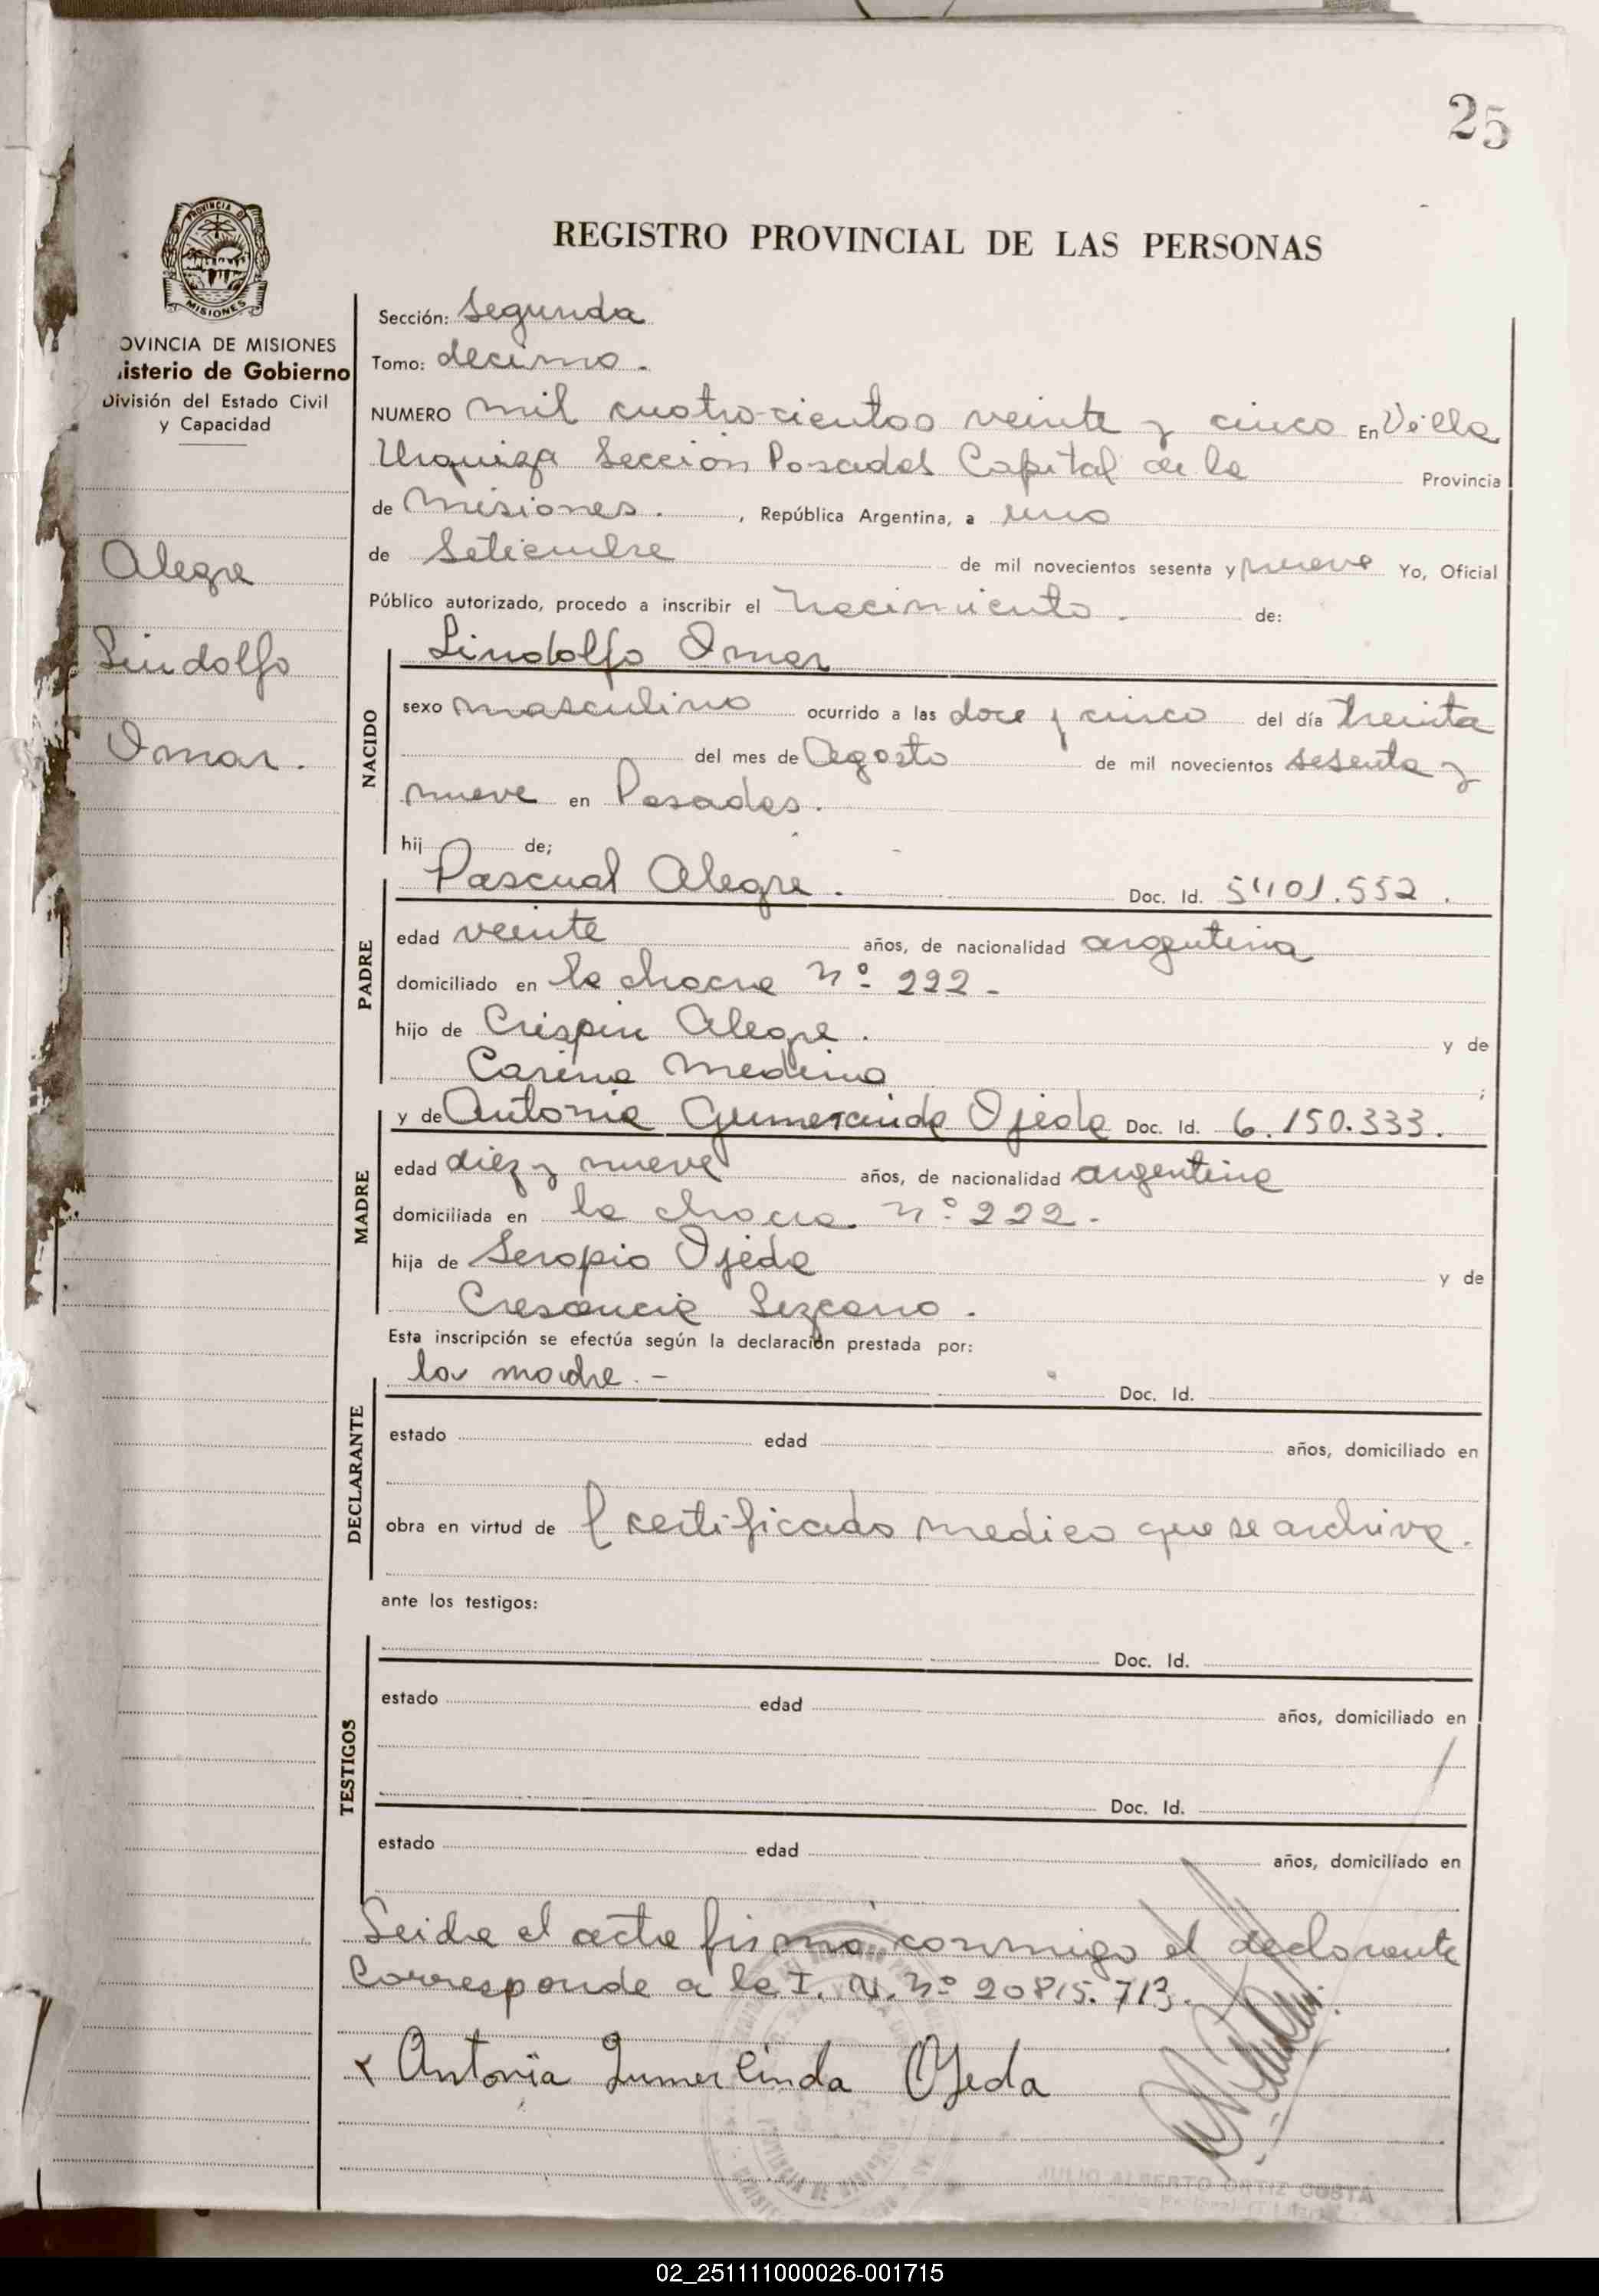 25
REGISTRO PROVINCIAL DE LAS PERSONAS
PROVINCIA DE
MISIONES
OVINCIA DE MISIONES
isterio de Gobierno
División del Estado Civil
y Capacidad
Alegre
Lindolfo
Omar.
Sección: Segunda
Tomo: decimo.
NUMERO mil cuatrocientos veinte y cinco En Villa
Urquiza Sección Posadas Capital de la Provincia
de Misiones. , República Argentina, a uno
de Setiembre de mil novecientos sesenta y nueve Yo, Oficial
Público autorizado, procedo a inscribir el nacimiento. de:
NACIDO
Lindolfo Omar
sexo masculino ocurrido a las doce y cinco del día treinta
del mes de Agosto de mil novecientos sesenta y
nueve en Posadas.
hij de;
PADRE
Pascual Alegre. Doc. Id. 5401.552.
edad veinte años, de nacionalidad argentina
domiciliado en la chacra nº 222-
hijo de Crispin Alegre. y de
Carina Medina ;
MADRE
y de Antonia Gumercinda Ojeda Doc. Id. 6.150.333.
edad diez y nueve años, de nacionalidad argentina
domiciliada en la chacra nº 222-
hija de Serapio Ojeda y de
Cresencia Lezcano.
Esta inscripción se efectúa según la declaración prestada por:
DECLARANTE
la madre.- Doc. Id.
estado edad años, domiciliado en
obra en virtud de l certificado medico que se archiva.
ante los testigos:
TESTIGOS
Doc. Id.
estado edad años, domiciliado en
Doc. Id.
estado edad años, domiciliado en
Leida el acta firmó conmigo el declarante
Corresponde a la I. N. nº 20815.713.
x Antonia Gumerlinda Ojeda
JULIO ALBERTO ORTIZ COSTA
02_251111000026-001715